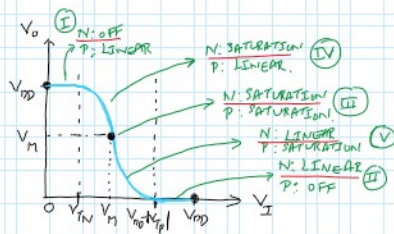 V₀
Ⓘ N: OFF
P: LINEAR
N: SATURATION
P: LINEAR.
IV
N: SATURATION
P: SATURATION.
III
N: LINEAR
P: SATURATION
V
N: LINEAR
P: OFF
II
V_DD
V_M
0
V_TN
V_M
V_DD-|V_TP|
V_DD
V_I